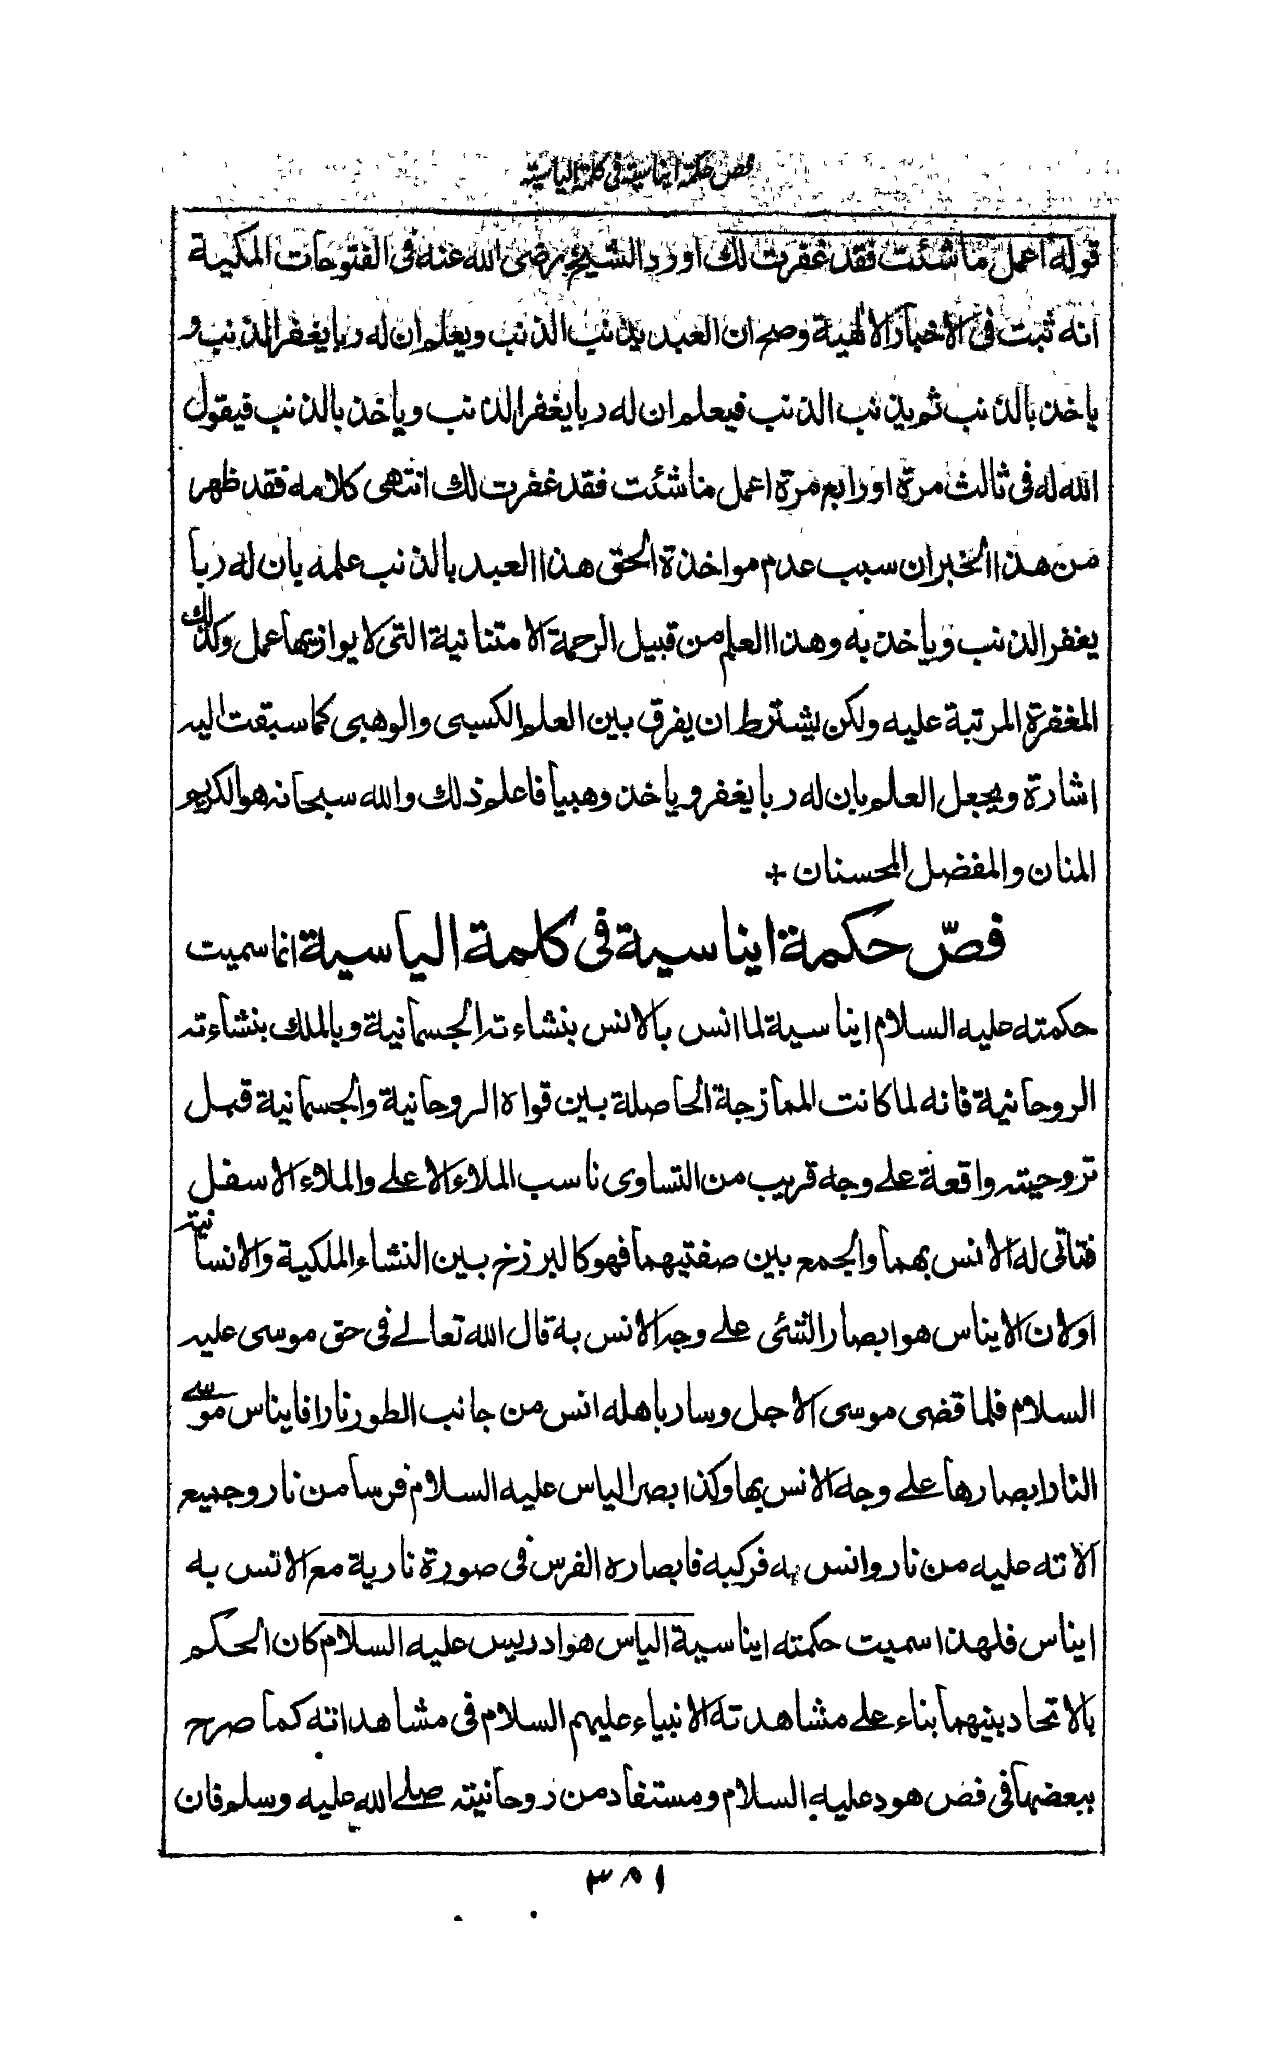 فص حكمة ايناسية فى كلمة الياسية
قوله اعمل ما شئت فقد غفرت لك اورد الشيخ رضى الله عنه فى الفتوحات المكية
انه ثبت فى الاخبار الالهية وصح ان العبد يذنب الذنب ويعلم ان له ربا يغفر الذنب و
ياخذ بالذنب ثم يذنب الذنب فيعلم ان له ربا يغفر الذنب وياخذ بالذنب فيقول
الله له فى ثالث مرة او رابع مرة اعمل ما شئت فقد غفرت لك انتهى كلامه فقد ظهر
من هذا الخبر ان سبب عدم مواخذة الحق هذا العبد بالذنب علمه بان له ربا
يغفر الذنب وياخذ به وهذا العلم من قبيل الرحمة الامتنانية التى لا يوازيها عمل وكذلك
المغفرة المرتبة عليه ولكن يشترط ان يفرق بين العلم الكسبى والوهبى كما سبقت اليه
اشارة ويجعل العلم بان له ربا يغفر وياخذ وهبيا فاعلم ذلك والله سبحانه هو الكريم
المنان والمفضل المحسنان +
فصّ حكمة ايناسية فى كلمة الياسية انما سميت
حكمته عليه السلام ايناسية لما انس بالانس بنشاءته الجسمانية وبالملك بنشاءته
الروحانية فانه لما كانت الممازجة الحاصلة بين قواه الروحانية والجسمانية قبل
تروحيته واقعة على وجه قريب من التساوى ناسب الملاء الاعلے والملاء الاسفل
فتاتى له الانس بهما والجمع بين صفتيهما فهو كالبرزخ بين النشاء الملكية والانسانية
اولان الايناس هو ابصار الشئى علے وجه الانس به قال الله تعالے فى حق موسى عليه
السلام فلما قضى موسى الاجل وسار باهله انس من جانب الطور نارا فايناس موسے
النار ابصارها علے وجه الانس بها وكذا ابصر الياس عليه السلام فرسا من نار وجميع
الاته عليه من نار وانس به فركبه فابصاره الفرس فى صورة نارية مع الانس به
ايناس فلهذا سميت حكمته ايناسية الياس هو ادريس عليه السلام كان الحكم
بالاتحاد بينهما بناء علے مشاهدته الانبياء عليهم السلام فى مشاهداته كما صرح
ببعضها فى فص هود عليه السلام ومستفاد من روحانيته صلے الله عليه وسلم فان
٣٨١